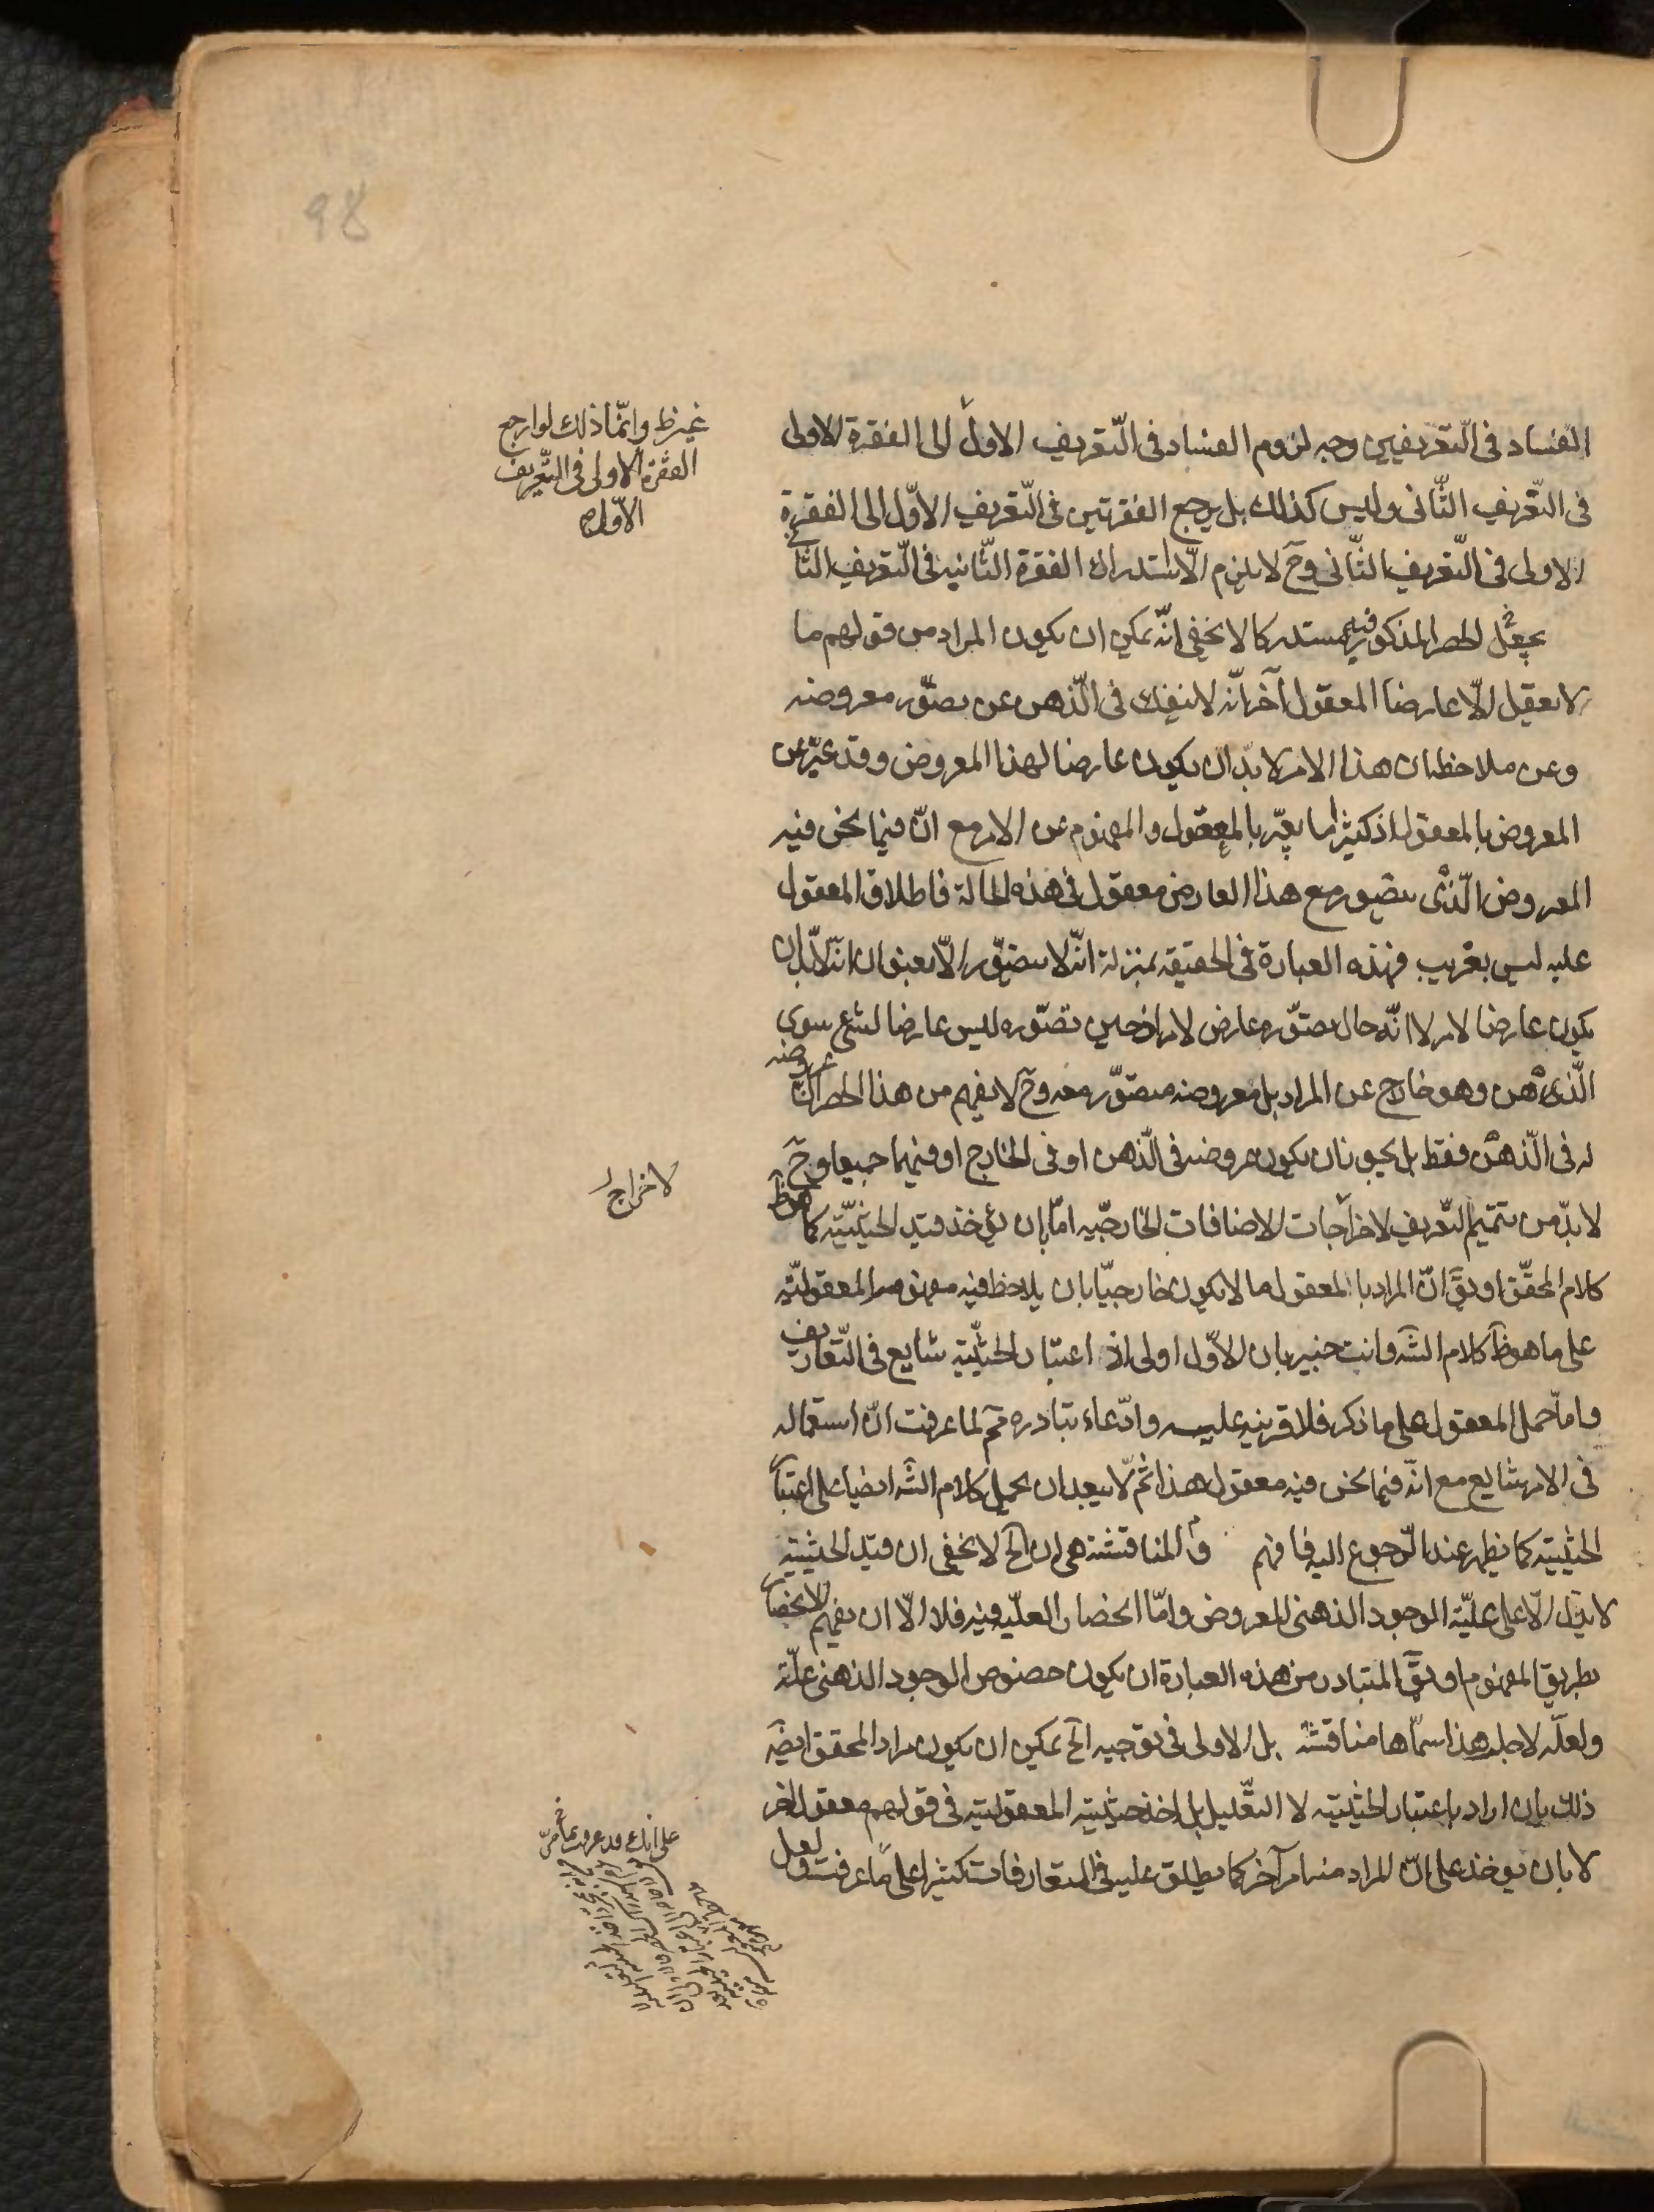 الفساد في التّعريفين وجه لزوم الفساد في التّعريف الاول الى الفقرة الاولى
في التّعريف الثّاني وليس كذلك بل يرجع الفقرتين في التّعريف الاوّل الى الفقرة
الاولى في التّعريف الثّاني وح لا يلزم الّا استدراك الفقرة الثّانية في التّعريف الثّا
بجعل الحصر المذكور فيه مستدركا لا يخفى انّه يمكن ان يكون المراد من قولهم ما
لا يعقل الّا عارضا لمعقول آخر انّه لا ينفك في الذّهن عن تصوّر معروضه
وعن ملاحظة ان هذا الامر لا بدّ ان يكون عارضا لهذا المعروض وقد عبّر عن
المعروض بالمعقول اذ كثيرا ما يعبّر بالمعقول والمفهوم عن الامر مع انّ فيما نحن فيه
المعروض الّذي يتصور مع هذا العارض معقول في هذه الحالة فاطلاق المعقول
عليه ليس بغريب فهذه العبارة في الحقيقة بمنزلة انّه لا يتصوّر الّا بعنوان انّه لا بدّ ان
يكون عارضا لامر لا انّه حال تصوّره عارض لامر اذ حين تصوّره ليس عارضا لشئ سوى
الذّهن وهو خارج عن المراد بل معروضه متصوّر معه وح لا يفهم من هذا الحصر انّ عروضه
له في الذّهن فقط بل يجوز ان يكون عروضه في الذّهن او في الخارج او فيهما جميعا وح
لا بدّ من تتميم التّعريف لاخراجات الاضافات الخارجيّه امّا بان يؤخذ قيد الحيثيّة كما هو ظ
كلام المحقّق او يق انّ المراد بالمعقول ما لا يكون خارجيّا بان يلاحظ فيه مفهوم المعقوليّة
على ما هو ظ كلام الشه وانت خبير بان الاوّل اولى اذ اعتبار الحيثيّة شايع في التّعاريف
وامّا حمل المعقول على ما ذكر فلا قرينه عليه وادّعاء تبادره مم لما عرفت انّ استعماله
في الامر شايع مع انّه فيما نحن فيه معقول هذا ثم لا يبعد ان يحمل كلام الشه ايضا على اعتبا
الحيثيّة كما يظهر عند الرّجوع اليه فافهم قم المناقشة هي ان الخ لا يخفى ان قيد الحيثيّة
لا يدّل الّا على علّيّة الوجود الذهني للعروض وامّا انحصار العلّيّه فيه فلا الّا ان يفهم الانحصار
بطريق المفهوم او يق المتبادر من هذه العبارة ان يكون خصوص الوجود الذهني علّة
ولعلّه لاجل هذا سمّاها مناقشة بل الاولى في توجيه الخ يمكن ان يكون مراد المحقق ايضه
ذلك بان اراد باعتبار الحيثيّة لا التّعليل بل اخذ حيثية المعقولية في قولهم معقول اخر
لا بان يؤخذ على انّ المراد منه امر آخر كما يطلق عليه في المتعارفات كثيرا على ما عرفت ولعل
غير ظ وانّما ذلك لو ارجع
الفقرة الاولى في التّعريف
الاوّل صح
لاخراج
على انك قد عرفت ما مرّ